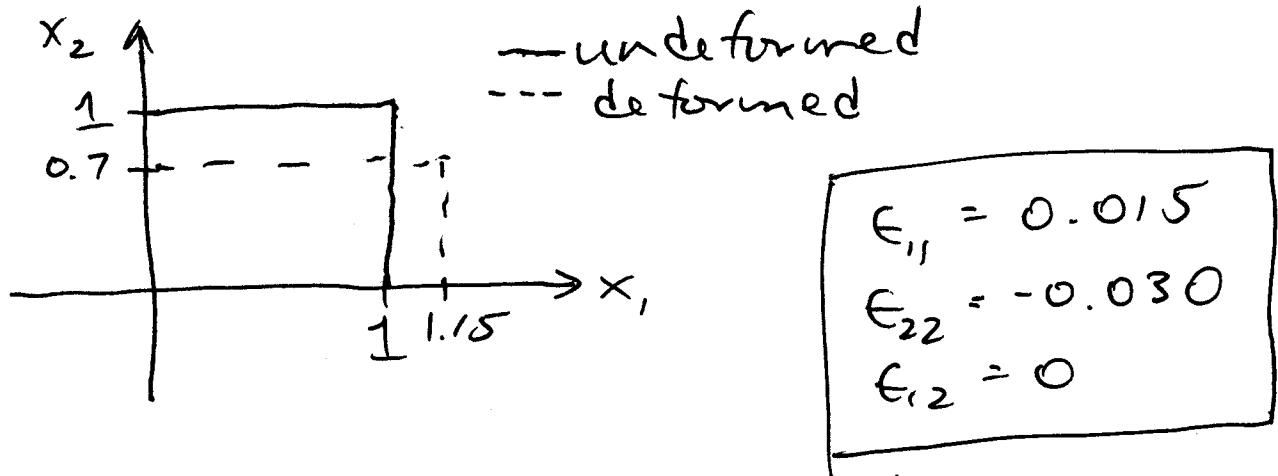 x₂
— undeformed
--- deformed
1
0.7
x₁
1 1.15
ϵ₁₁ = 0.015
ϵ₂₂ = -0.030
ϵ₁₂ = 0